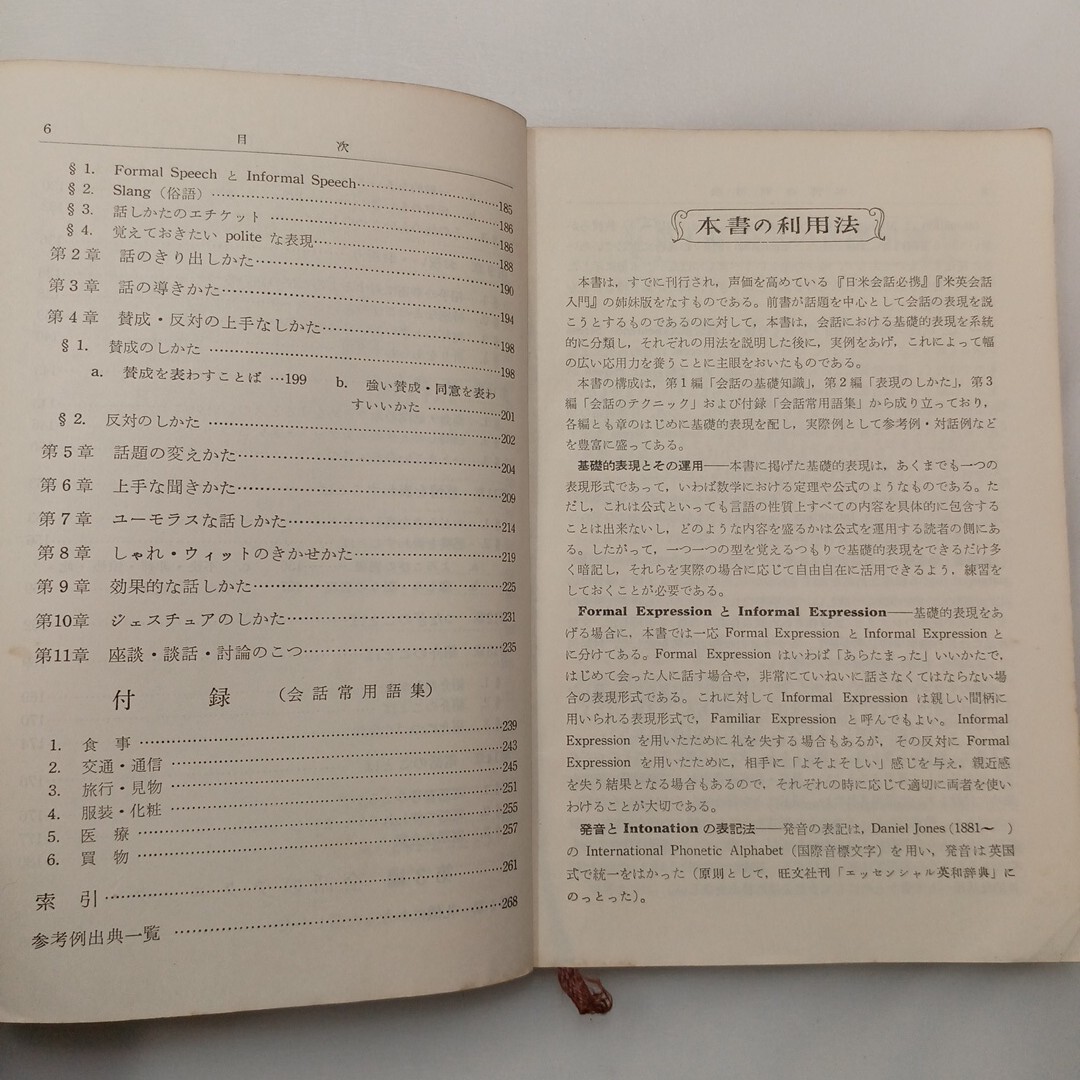 6
目 次
§ 1. Formal Speech と Informal Speech……185
§ 2. Slang（俗語）……186
§ 3. 話しかたのエチケット……186
§ 4. 覚えておきたい polite な表現……188
第2章 話のきり出しかた……190
第3章 話の導きかた……194
第4章 賛成・反対の上手なしかた……198
§ 1. 賛成のしかた……198
a. 賛成を表わすことば …199 b. 強い賛成・同意を表わ
すいいかた……201
§ 2. 反対のしかた……202
第5章 話題の変えかた……204
第6章 上手な聞きかた……209
第7章 ユーモラスな話しかた……214
第8章 しゃれ・ウィットのきかせかた……219
第9章 効果的な話しかた……225
第10章 ジェスチュアのしかた……231
第11章 座談・談話・討論のこつ……235
付 録 （会話常用語集）
1. 食 事……239
2. 交通・通信……243
3. 旅行・見物……245
4. 服装・化粧……251
5. 医 療……255
6. 買 物……257
索 引……261
参考例出典一覧……268
本書の利用法
本書は，すでに刊行され，声価を高めている『日米会話必携』『米英会話
入門』の姉妹版をなすものである。前書が話題を中心として会話の表現を説
こうとするものであるのに対して，本書は，会話における基礎的表現を系統
的に分類し，それぞれの用法を説明した後に，実例をあげ，これによって幅
の広い応用力を養うことに主眼をおいたものである。
本書の構成は，第1編「会話の基礎知識」，第2編「表現のしかた」，第3
編「会話のテクニック」および付録「会話常用語集」から成り立っており，
各編とも章のはじめに基礎的表現を配し，実際例として参考例・対話例など
を豊富に盛ってある。
基礎的表現とその運用——本書に掲げた基礎的表現は，あくまでも一つの
表現形式であって，いわば数学における定理や公式のようなものである。た
だし，これは公式といっても言語の性質上すべての内容を具体的に包含する
ことは出来ないし，どのような内容を盛るかは公式を運用する読者の側にあ
る。したがって，一つ一つの型を覚えるつもりで基礎的表現をできるだけ多
く暗記し，それらを実際の場合に応じて自由自在に活用できるよう，練習を
しておくことが必要である。
Formal Expression と Informal Expression——基礎的表現をあ
げる場合に，本書では一応 Formal Expression と Informal Expression と
に分けてある。Formal Expression はいわば「あらたまった」いいかたで，
はじめて会った人に話す場合や，非常にていねいに話さなくてはならない場
合の表現形式である。これに対して Informal Expression は親しい間柄に
用いられる表現形式で，Familiar Expression と呼んでもよい。Informal
Expression を用いたために礼を失する場合もあるが，その反対に Formal
Expression を用いたために，相手に「よそよそしい」感じを与え，親近感
を失う結果となる場合もあるので，それぞれの時に応じて適切に両者を使い
わけることが大切である。
発音と Intonation の表記法——発音の表記は，Daniel Jones (1881〜 )
の International Phonetic Alphabet（国際音標文字）を用い，発音は英国
式で統一をはかった（原則として，旺文社刊「エッセンシャル英和辞典」に
のっとった）。